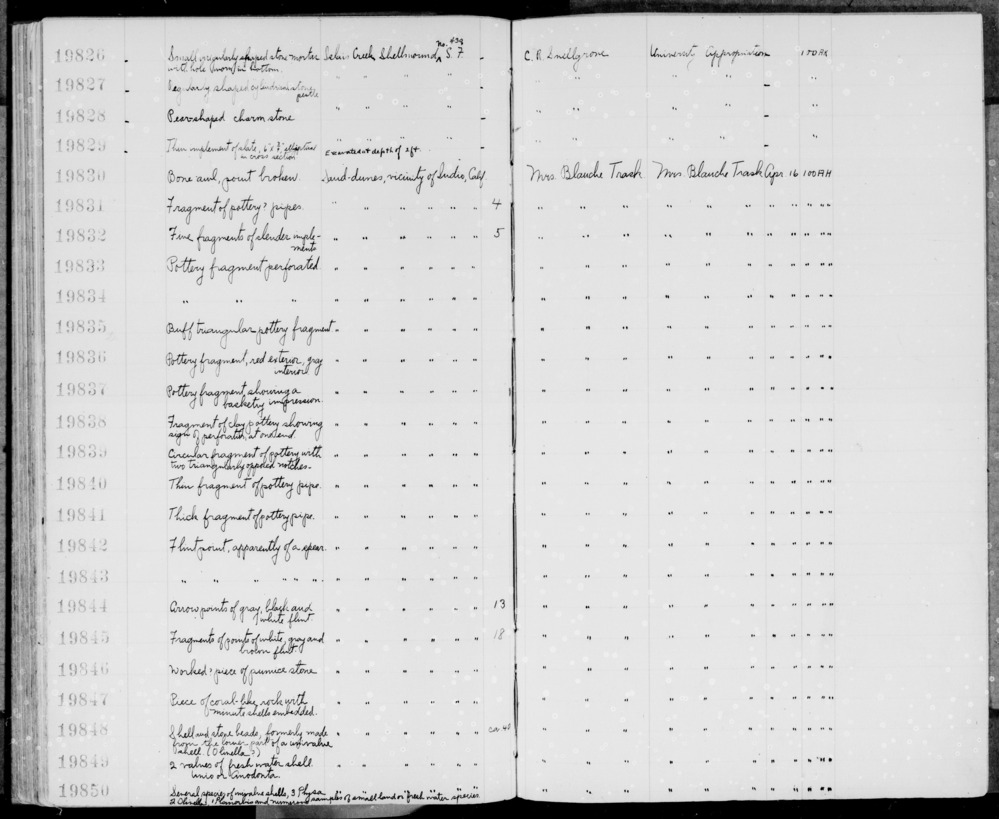 19826 - Small irregularly shaped stone mortar Selas Creek Shellmound, no. 439 S. F. - C. R. Snellgrove Universit Appropriation 100AK
with hole worn in bottom.
19827 - Regularly shaped cylindrical stone " " " " - " " " " - "
pestle
19828 - Pear-shaped charm stone " " " " - " " " " - "
19829 - Thin implement of slate, 6" x 3/4" elliptical " " " " - " " " " - "
in cross section Excavated at depth of 2 ft.
19830 Bone awl, point broken. Sand-dunes, vicinity of Indio, Calif. Mrs. Blanche Trask Mrs. Blanche Trask Apr 16 100AH
19831 Fragment of pottery? pipes. " " " " " " 4 " " " " " " " " " "
19832 Fine fragments of slender imple- " " " " " " 5 " " " " " " " " " "
ments
19833 Pottery fragment perforated " " " " " " " " " " " " " " " "
19834 " " " " " " " " " " " " " " " " " " "
19835 Buff triangular pottery fragment " " " " " " " " " " " " " " " "
19836 Pottery fragment, red exterior, gray " " " " " " " " " " " " " " " "
interior
19837 Pottery fragment, showing a " " " " " " " " " " " " " " " "
basketry impression.
19838 Fragment of clay pottery showing " " " " " " " " " " " " " " " "
sign of perforation, at one end.
19839 Circular fragment of pottery with " " " " " " " " " " " " " " " "
two triangularly opposed notches.
19840 Thin fragment of pottery pipe. " " " " " " " " " " " " " " " "
19841 Thick fragment of pottery pipe. " " " " " " " " " " " " " " " "
19842 Flint point, apparently of a spear. " " " " " " " " " " " " " " " "
19843 " " " " " " " " " " " " " " " " " " " " " "
19844 Arrow points of gray, black and " " " " " " 13 " " " " " " " " " "
white flint
19845 Fragments of points of white, gray and " " " " " " 18 " " " " " " " " " "
brown flint
19846 Worked? piece of pumice stone " " " " " " " " " " " " " " " "
19847 Piece of coral-like rock with " " " " " " " " " " " " " " " "
minute shells embedded.
19848 Shell and stone beads, formerly made " " " " " " ca 40 " " " " " " " " " "
from the lower part of a univalve
shell (Olivella?)
19849 2 valves of fresh water shell. " " " " " " " " " " " " " " " "
Unio or Anodonta.
19850 Several species of univalve shells, 3 Physa " " " " " " " " " "
2 Olivella, 1 Planorbis and numerous samples of small land or fresh water species.